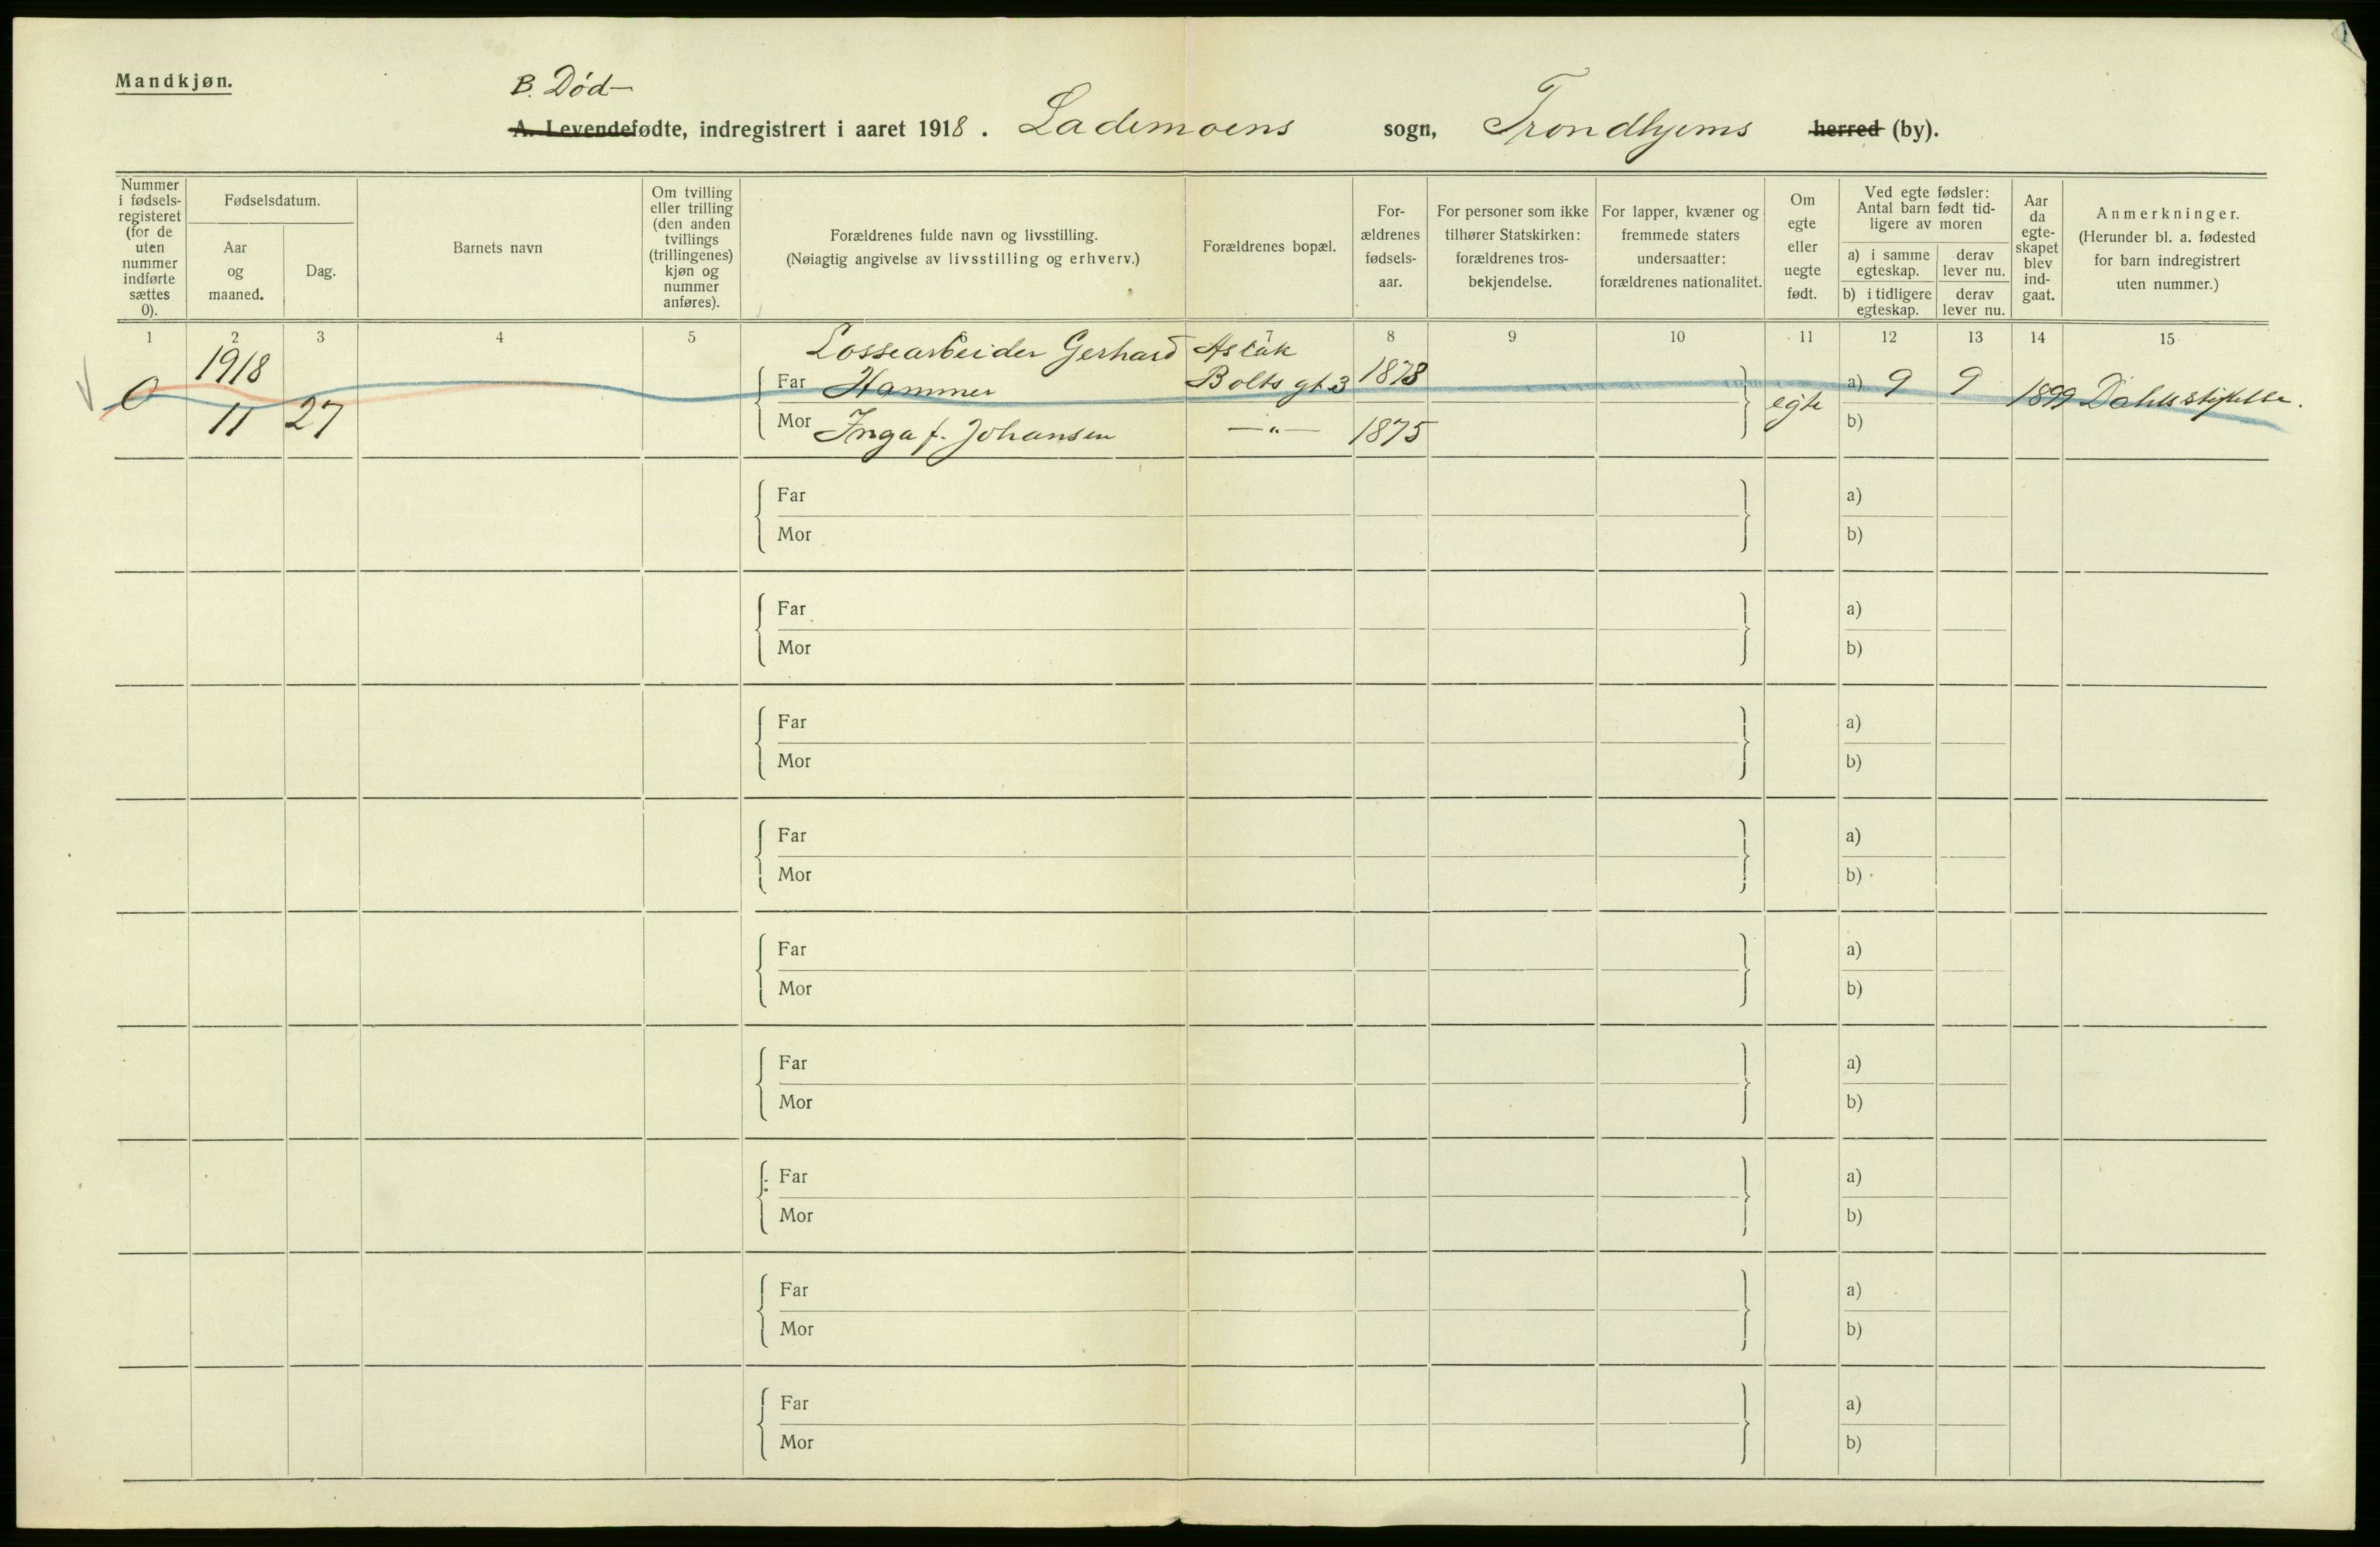 Mandkjøn.
B. Død-
A. Levendefødte, indregistrert i aaret 1918. Lademoens sogn, Trondhjems herred (by).
Nummer i fødsels-registeret (for de uten nummer indførte sættes 0).
Fødselsdatum.
Aar og maaned.
Dag.
Barnets navn
Om tvilling eller trilling (den anden tvillings (trillingenes) kjøn og nummer anføres).
Forældrenes fulde navn og livsstilling.
(Nøiagtig angivelse av livsstilling og erhverv.)
Forældrenes bopæl.
For-ældrenes fødsels-aar.
For personer som ikke tilhører Statskirken: forældrenes tros-bekjendelse.
For lapper, kvæner og fremmede staters undersaatter: forældrenes nationalitet.
Om egte eller uegte født.
Ved egte fødsler: Antal barn født tid-ligere av moren
a) i samme egteskap.
derav lever nu.
b) i tidligere egteskap.
derav lever nu.
Aar da egte-skapet blev ind-gaat.
Anmerkninger.
(Herunder bl. a. fødested for barn indregistrert uten nummer.)
1 2 3 4 5 7 8 9 10 11 12 13 14 15
Lossearbeider Gerhard
0 1918 Far Hammer Bolts gt 3 1878 egte a) 9 9 1899 Dahls stiftelse.
11 27 Mor Inga f. Johansen —"— 1875 b)
Far a)
Mor b)
Far a)
Mor b)
Far a)
Mor b)
Far a)
Mor b)
Far a)
Mor b)
Far a)
Mor b)
Far a)
Mor b)
Far a)
Mor b)
Far a)
Mor b)